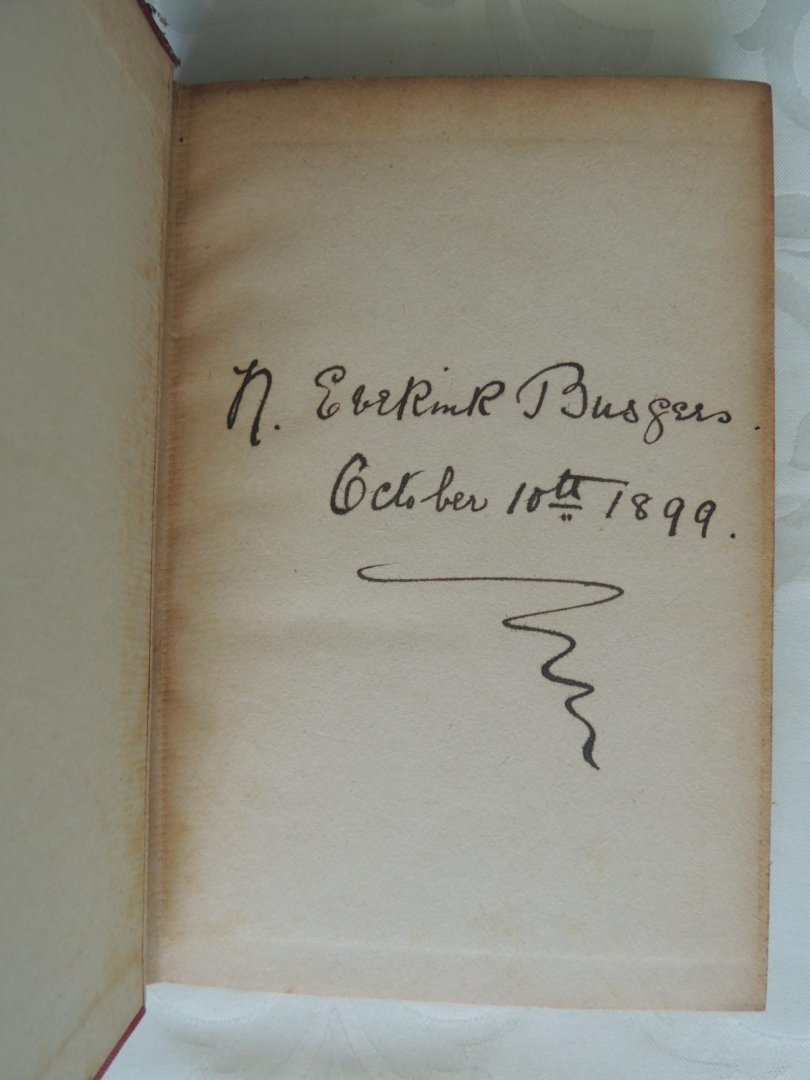 N. Everink Busgers.
October 10th 1899.